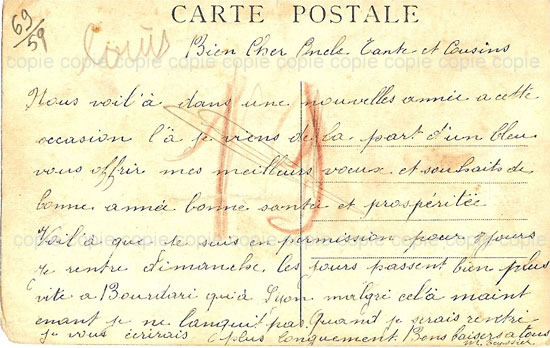 CARTE POSTALE
69/59
Louis
Bien Cher Oncle Tante et Cousins
Nous voil'à dans une nouvelles année a cette
occasion l'à je viens de la part d'un bleu
vous offrir mes meilleurs voeux et souhaits de
bonne année bonne santé et prospéritée
Voil'à que je suis en permission pour 8 jours
Je rentre dimanche. les jours passent bien plus
vite a Bourdari qu'à Lyon malgré cel'à maint
enant je ne languit pas. Quand je serais rentré
je vous écrirais plus longuement. Bons baisers a tous
copie copie copie copie copie copie copie copie